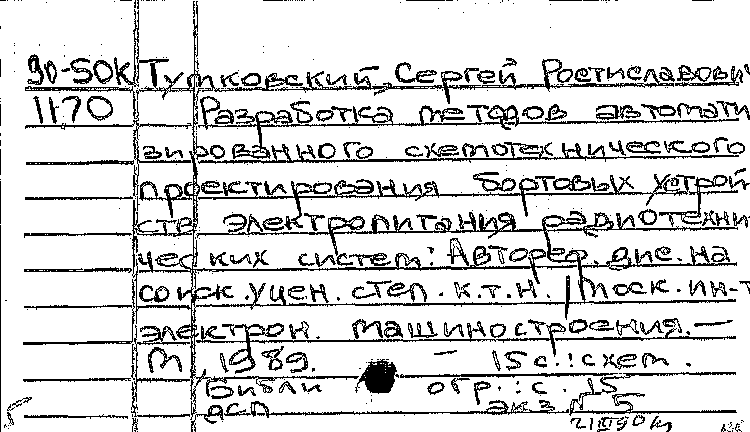 90-5ОК Тутковский, Сергей Ростиславови
1170 Разработка методов автомати
зированного схемотехнического
проектирования бортовых устрой
ств электропитания радиотехни
ческих систем: Автореф. дис. на
соиск. учен. степ. к.т.н. / Моск. ин-т
электрон. машиностроения. —
М, 1989. — 15 с.: схем.
Библи огр.: с. 15
ДСП экз. № 5
5